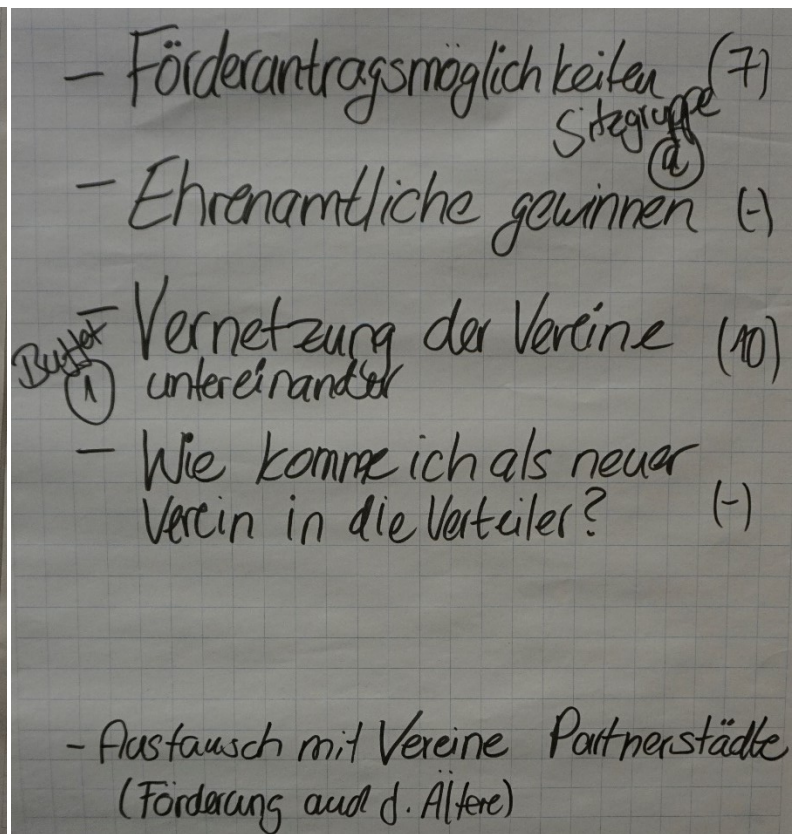 - Förderantragsmöglichkeiten (7)
Sitzgruppe
- Ehrenamtliche gewinnen (-)
- Vernetzung der Vereine (10)
Buffet
1 untereinander
- Wie komme ich als neuer
Verein in die Verteiler? (-)
- Austausch mit Vereine Partnerstädte
(Förderung auch d. Ältere)